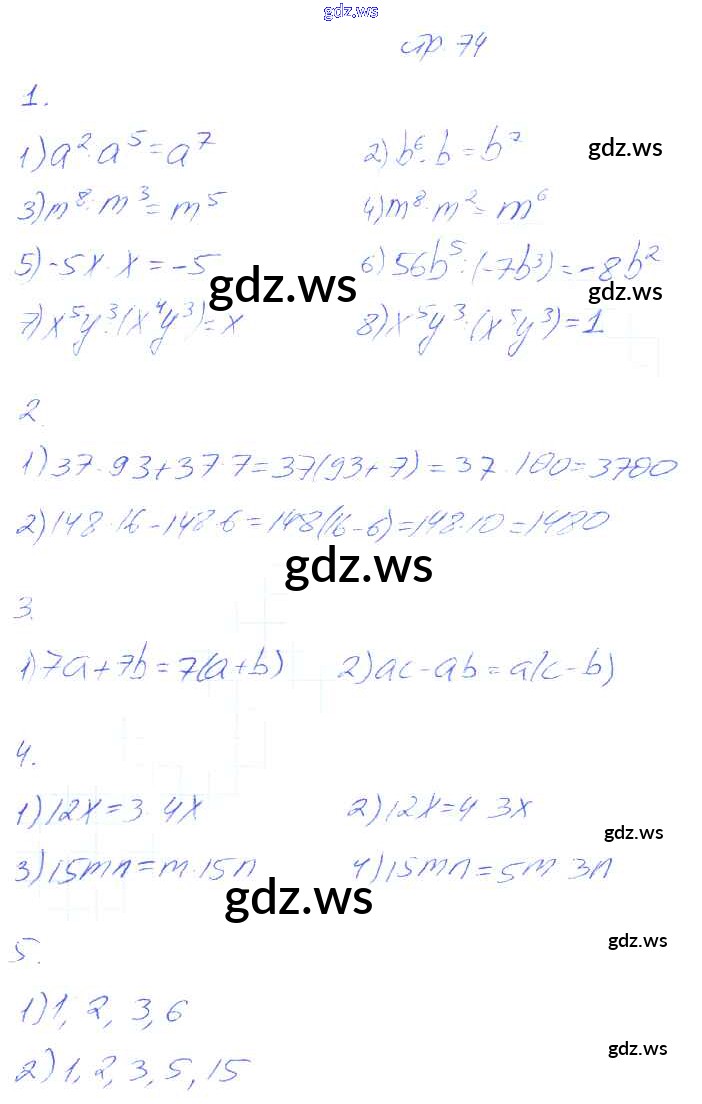 gdz.ws
стр. 74
1.
1) a²·a⁵=a⁷ 2) b⁶·b=b⁷ gdz.ws
3) m⁸:m³=m⁵ 4) m⁸:m²=m⁶
5) -5x:x=-5 6) 56b⁵:(-7b³)=-8b²
gdz.ws gdz.ws
7) x⁵y³:(x⁴y³)=x 8) x⁵y³:(x⁵y³)=1
2.
1) 37·93+37·7=37(93+7)=37·100=3700
2) 148·16-148·6=148(16-6)=148·10=1480
gdz.ws
3.
1) 7a+7b=7(a+b) 2) ac-ab=a(c-b)
4.
1) 12x=3·4x 2) 12x=4·3x
gdz.ws
3) 15mn=m·15n 4) 15mn=5m·3n
gdz.ws
5. gdz.ws
1) 1, 2, 3, 6
2) 1, 2, 3, 5, 15 gdz.ws